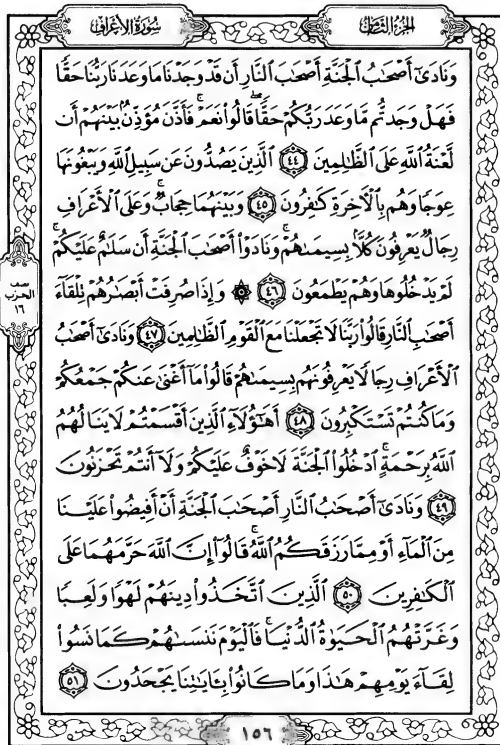 الجزء الثامن
سورة الأعراف
وَنَادَىٰٓ أَصْحَٰبُ ٱلْجَنَّةِ أَصْحَٰبَ ٱلنَّارِ أَن قَدْ وَجَدْنَا مَا وَعَدَنَا رَبُّنَا حَقًّا
فَهَلْ وَجَدتُّم مَّا وَعَدَ رَبُّكُمْ حَقًّا ۖ قَالُوا۟ نَعَمْ ۚ فَأَذَّنَ مُؤَذِّنٌۢ بَيْنَهُمْ أَن
لَّعْنَةُ ٱللَّهِ عَلَى ٱلظَّٰلِمِينَ ٤٤ ٱلَّذِينَ يَصُدُّونَ عَن سَبِيلِ ٱللَّهِ وَيَبْغُونَهَا
عِوَجًا وَهُم بِٱلْءَاخِرَةِ كَٰفِرُونَ ٤٥ وَبَيْنَهُمَا حِجَابٌ ۚ وَعَلَى ٱلْأَعْرَافِ
رِجَالٌ يَعْرِفُونَ كُلًّۢا بِسِيمَىٰهُمْ ۚ وَنَادَوْا۟ أَصْحَٰبَ ٱلْجَنَّةِ أَن سَلَٰمٌ عَلَيْكُمْ ۚ
لَمْ يَدْخُلُوهَا وَهُمْ يَطْمَعُونَ ٤٦ ۞ وَإِذَا صُرِفَتْ أَبْصَٰرُهُمْ تِلْقَآءَ
أَصْحَٰبِ ٱلنَّارِ قَالُوا۟ رَبَّنَا لَا تَجْعَلْنَا مَعَ ٱلْقَوْمِ ٱلظَّٰلِمِينَ ٤٧ وَنَادَىٰٓ أَصْحَٰبُ
ٱلْأَعْرَافِ رِجَالًا يَعْرِفُونَهُم بِسِيمَىٰهُمْ قَالُوا۟ مَآ أَغْنَىٰ عَنكُمْ جَمْعُكُمْ
وَمَا كُنتُمْ تَسْتَكْبِرُونَ ٤٨ أَهَٰٓؤُلَآءِ ٱلَّذِينَ أَقْسَمْتُمْ لَا يَنَالُهُمُ
ٱللَّهُ بِرَحْمَةٍ ۚ ٱدْخُلُوا۟ ٱلْجَنَّةَ لَا خَوْفٌ عَلَيْكُمْ وَلَآ أَنتُمْ تَحْزَنُونَ
٤٩ وَنَادَىٰٓ أَصْحَٰبُ ٱلنَّارِ أَصْحَٰبَ ٱلْجَنَّةِ أَنْ أَفِيضُوا۟ عَلَيْنَا
مِنَ ٱلْمَآءِ أَوْ مِمَّا رَزَقَكُمُ ٱللَّهُ ۚ قَالُوٓا۟ إِنَّ ٱللَّهَ حَرَّمَهُمَا عَلَى
ٱلْكَٰفِرِينَ ٥٠ ٱلَّذِينَ ٱتَّخَذُوا۟ دِينَهُمْ لَهْوًا وَلَعِبًا
وَغَرَّتْهُمُ ٱلْحَيَوٰةُ ٱلدُّنْيَا ۚ فَٱلْيَوْمَ نَنسَىٰهُمْ كَمَا نَسُوا۟
لِقَآءَ يَوْمِهِمْ هَٰذَا وَمَا كَانُوا۟ بِـَٔايَٰتِنَا يَجْحَدُونَ ٥١
نصف
الحزب
١٦
١٥٦